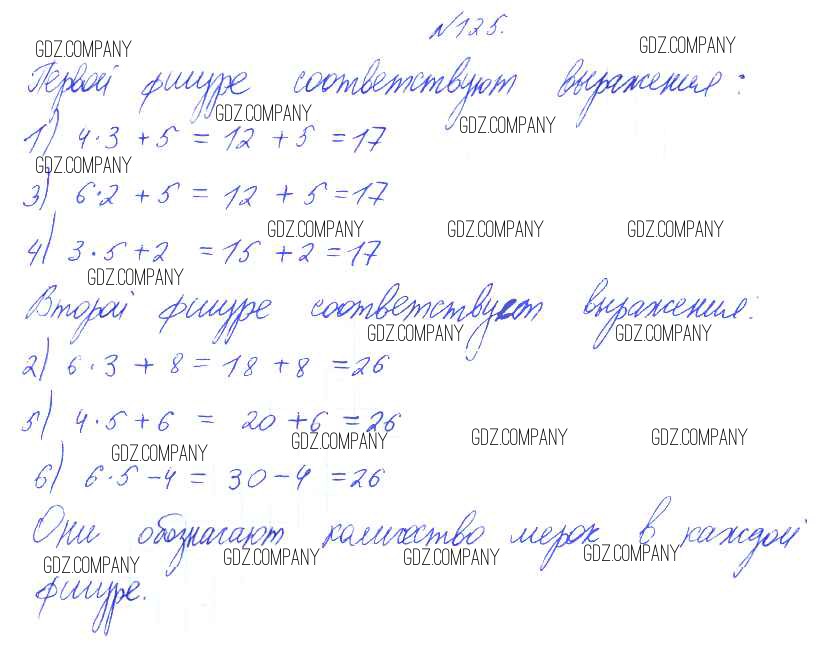 №125.
GDZ.COMPANY GDZ.COMPANY
Первой фигуре соответствуют выражения:
GDZ.COMPANY GDZ.COMPANY
1) 4·3 + 5 = 12 + 5 = 17
GDZ.COMPANY
3) 6·2 + 5 = 12 + 5 = 17
GDZ.COMPANY GDZ.COMPANY GDZ.COMPANY
4) 3·5 + 2 = 15 + 2 = 17
GDZ.COMPANY
Второй фигуре соответствуют выражения:
GDZ.COMPANY GDZ.COMPANY
2) 6·3 + 8 = 18 + 8 = 26
5) 4·5 + 6 = 20 + 6 = 26
GDZ.COMPANY GDZ.COMPANY GDZ.COMPANY GDZ.COMPANY
6) 6·5 – 4 = 30 – 4 = 26
Они обозначают количество мерок в каждой
GDZ.COMPANY GDZ.COMPANY GDZ.COMPANY GDZ.COMPANY
фигуре.